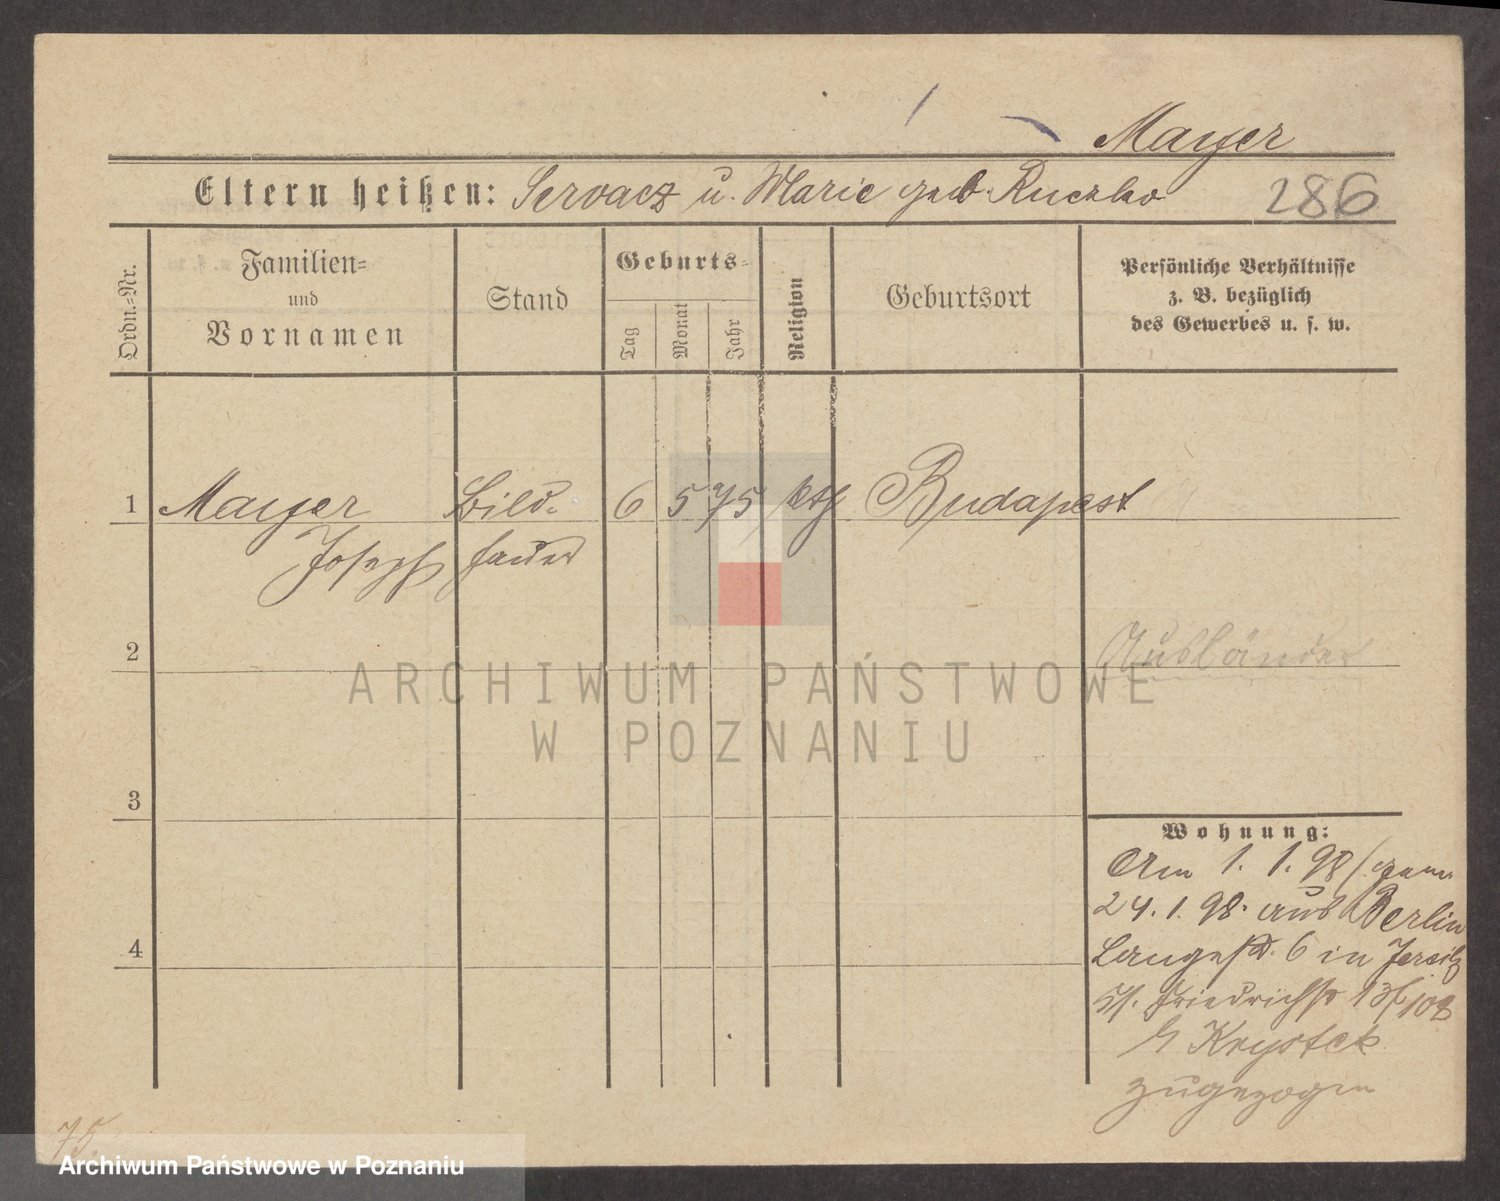 Mayer
Eltern heißen: Servacz u. Marie geb. Ruczko
286
Ordn.=Nr.
Familien=
und
Vornamen
Stand
Geburts=
Tag
Monat
Jahr
Religion
Geburtsort
Persönliche Verhältnisse
z. B. bezüglich
des Gewerbes u. s. w.
1 Mayer Bild- 6 5 75 kth Budapest
Joseph hauer
2 Ausländer
3
Wohnung:
Am 1. 1. 98 / gem.
24. 1. 98. aus Berlin
4 Langestr. 6 in Jersitz
Friedrichstr
Krystek
zugezogen
75.
ARCHIWUM PAŃSTWOWE
W POZNANIU
Archiwum Państwowe w Poznaniu